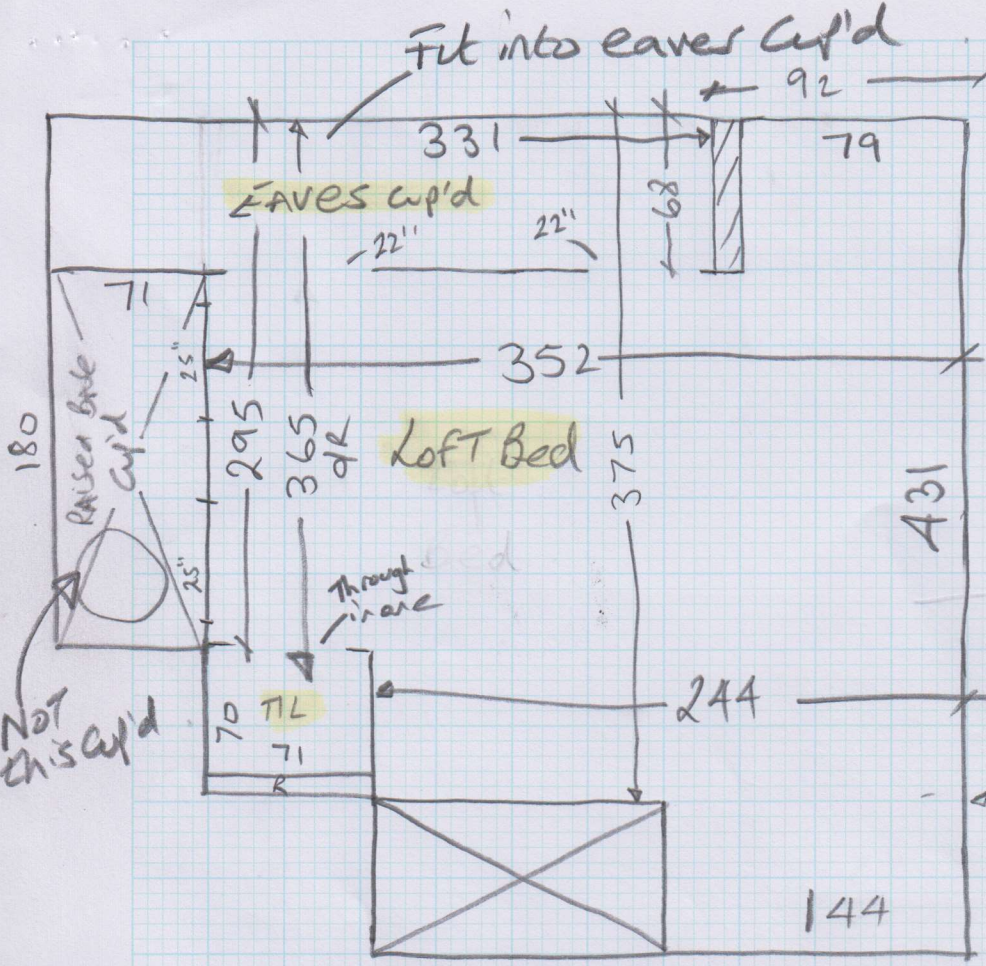 Fit into eaves Cup'd
92
331
79
EAVES cup'd
68
22"
22"
71
25"
352
RAISED BASE
Cup'd
180
295
365
O/R
LOFT Bed
375
431
25"
Through
in one
NOT
this cup'd
70
T/L
71
R
244
144